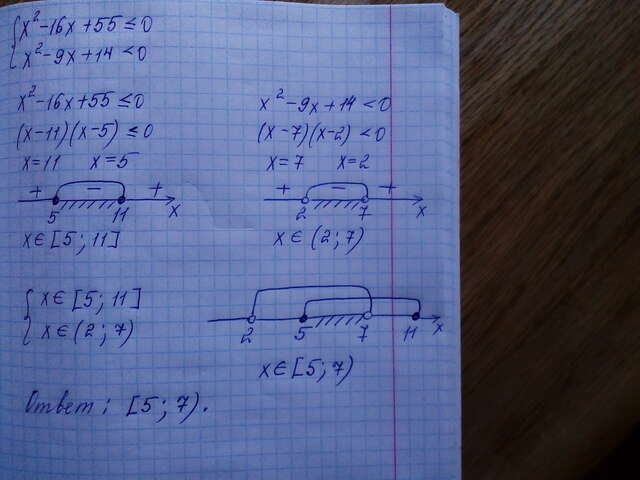 x²-16x+55≤0
x²-9x+14<0
x²-16x+55≤0
(x-11)(x-5)≤0
x=11 x=5
+ - +
5 11 x
x∈[5;11]
x²-9x+14<0
(x-7)(x-2)<0
x=7 x=2
+ - +
2 7 x
x∈(2;7)
x∈[5;11]
x∈(2;7)
2 5 7 11 x
x∈[5;7)
Ответ: [5;7).